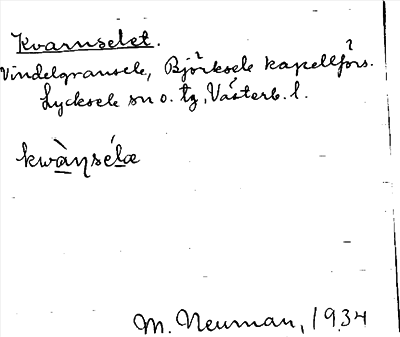 Kvarnselet.
Vindelgransele, Björksele kapellförs.
Lycksele sn o. tg, Västerb. l.
kwàηséla
M. Neuman, 1934